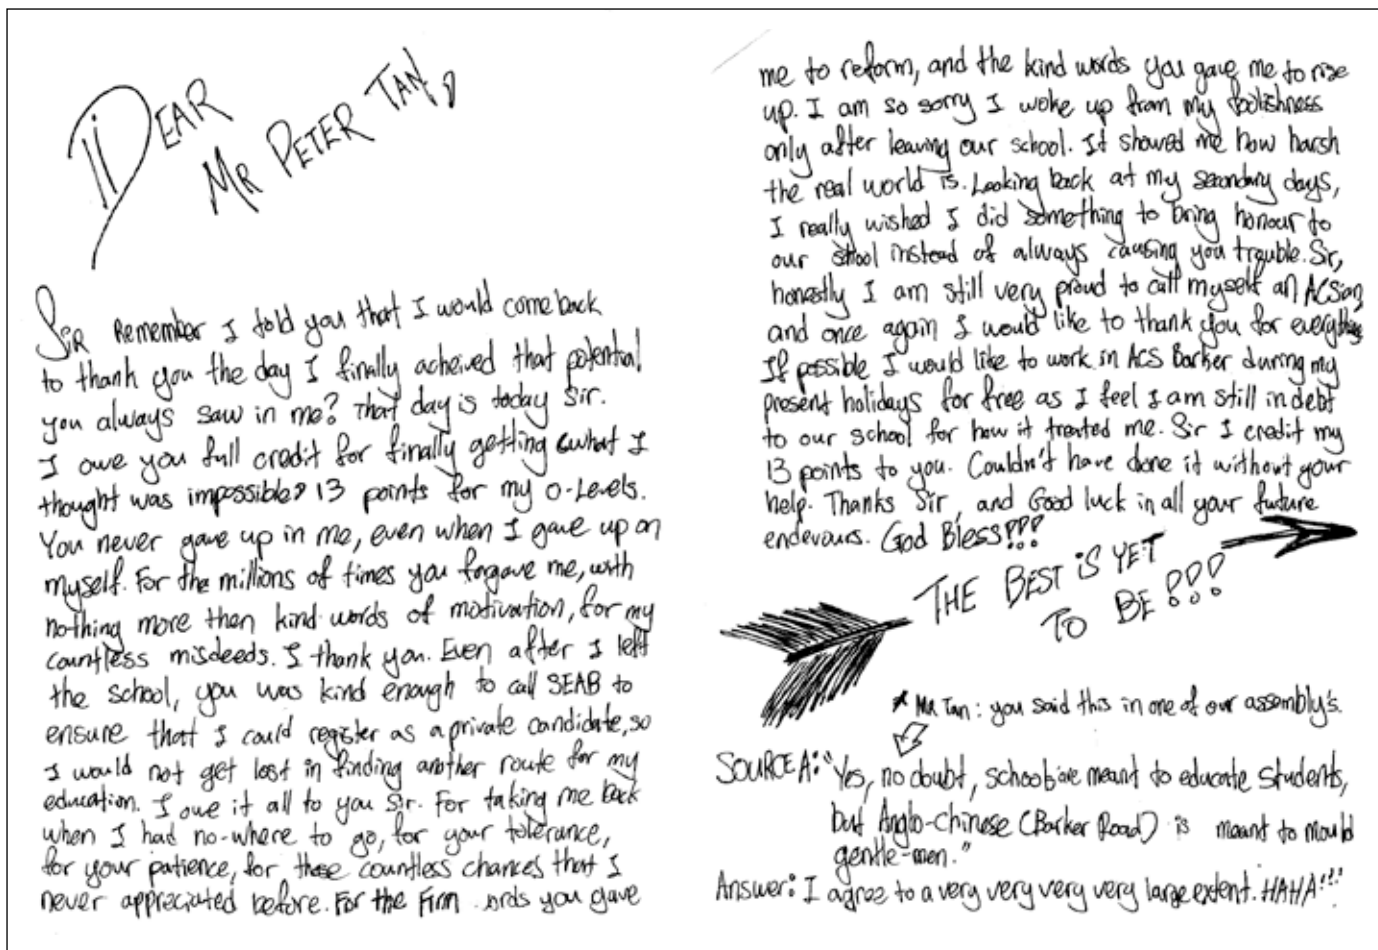 DEAR
MR PETER TAN,
SIR Remember I told you that I would come back
to thank you the day I finally acheived that potential
you always saw in me? That day is today Sir.
I owe you full credit for finally getting what I
thought was impossible? 13 points for my O-Levels.
You never gave up in me, even when I gave up on
myself. For the millions of times you forgave me, with
nothing more then kind words of motivation, for my
countless misdeeds. I thank you. Even after I left
the school, you was kind enough to call SEAB to
ensure that I could register as a private candidate, so
I would not get lost in finding another route for my
education. I owe it all to you Sir. For taking me back
when I had no-where to go, for your tolerance,
for your patience, for those countless chances that I
never appreciated before. For the Firm ords you gave
me to reform, and the kind words you gave me to rise
up. I am so sorry I woke up from my foolishness
only after leaving our school. It showed me how harsh
the real world is. Looking back at my secondary days,
I really wished I did something to bring honour to
our school instead of always causing you trouble. Sir,
honestly I am still very proud to call myself an ACSian,
and once again I would like to thank you for everything.
If possible I would like to work in ACS Barker during my
present holidays for free as I feel I am still in debt
to our school for how it treated me. Sir I credit my
13 points to you. Couldn't have done it without your
help. Thanks Sir, and Good luck in all your future
endevours. God Bless!!!
THE BEST IS YET
TO BE!!!
* Mr Tan: you said this in one of our assembly's.
SOURCE A: "Yes, no doubt, schools are meant to educate students,
but Anglo-Chinese (Barker Road) is meant to mould
gentle-men."
Answer: I agree to a very very very very large extent. HAHA!!!